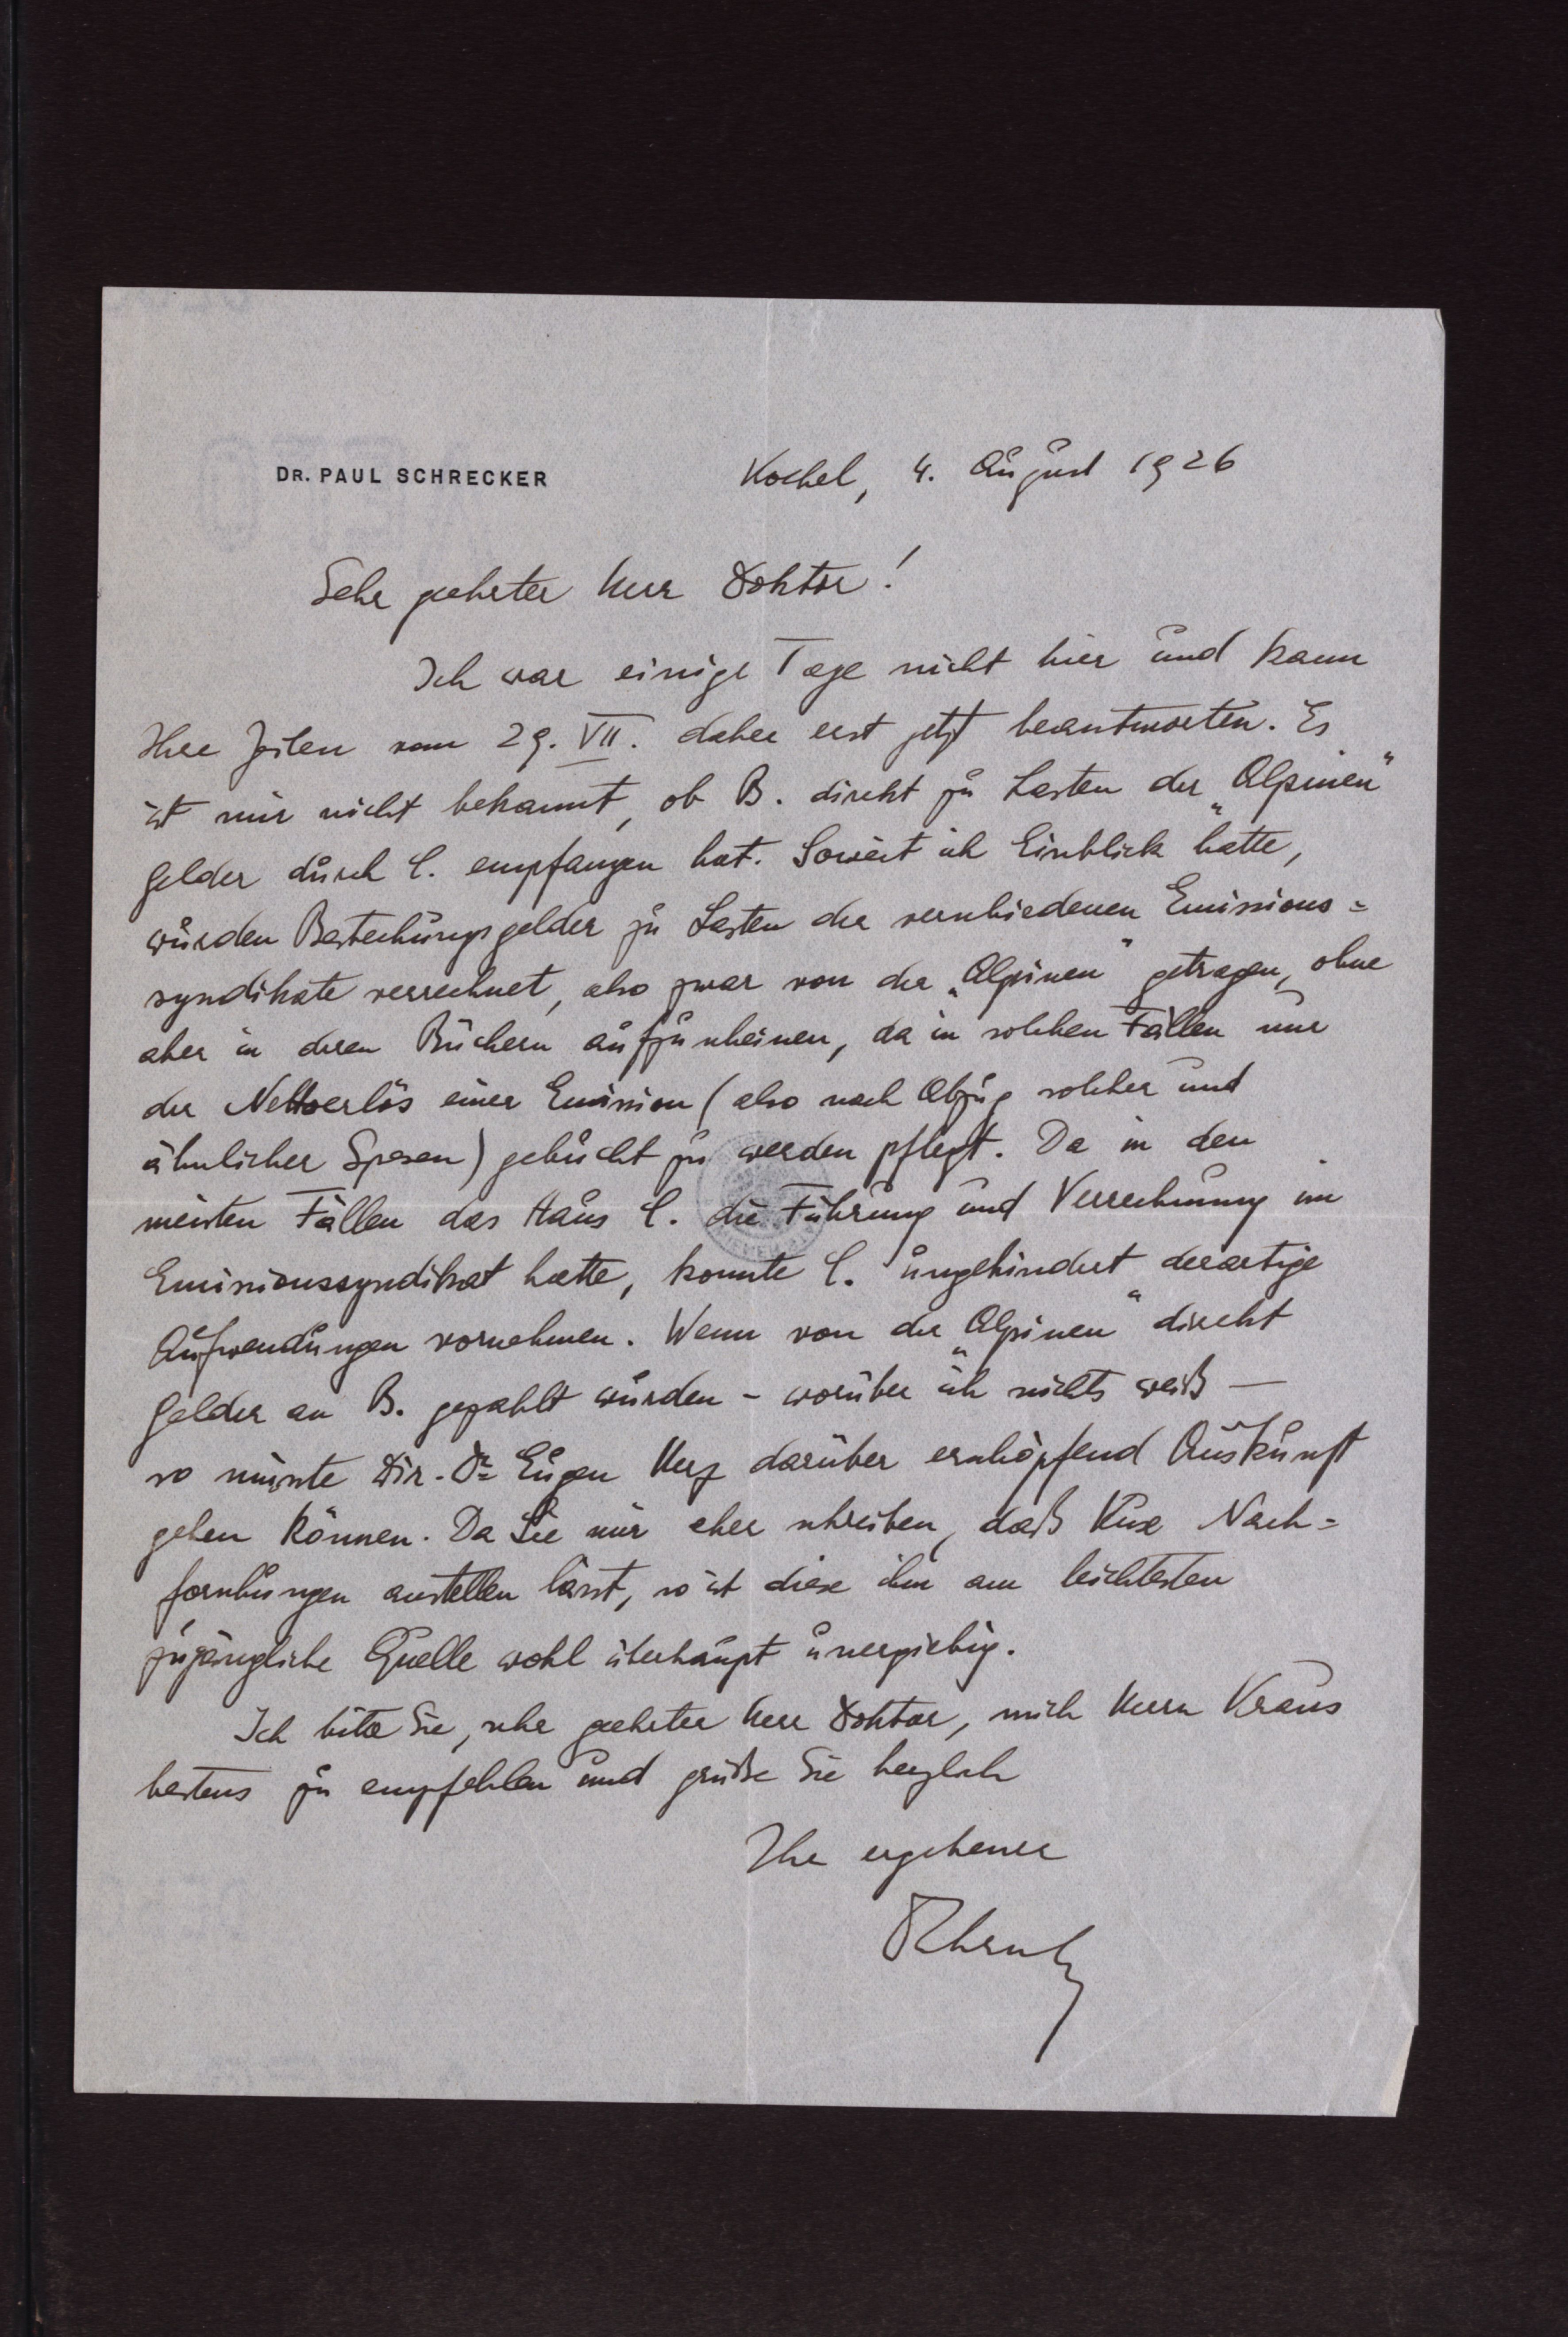 DR. PAUL SCHRECKER
Kochel, 4. August 1926
Sehr geehrter Herr Doktor!
Ich war einige Tage nicht hier und kann
Ihre Zeilen vom 29. VII. daher erst jetzt beantworten. Es
ist mir nicht bekannt, ob B. direkt zu Lasten der „Alpinen“
Gelder durch C. empfangen hat. Soweit ich Einblick hatte,
wurden Bestechungsgelder zu Lasten der verschiedenen Emissions=
syndikate verrechnet, also zwar von der „Alpinen“ getragen, ohne
aber in deren Büchern aufzuscheinen, da in solchen Fällen nur
der Nettoerlös einer Emission (also nach Abzug solcher und
ähnlicher Spesen) gebucht zu werden pflegt. Da in den
meisten Fällen das Haus C. die Führung und Verrechnung im
Emissionssyndikat hatte, konnte C. ungehindert derartige
Aufwendungen vornehmen. Wenn von der „Alpinen“ direkt
Gelder an B. gezahlt wurden – worüber ich nichts weiß –
so müsste Dir. Dr Eugen Herz darüber erschöpfend Auskunft
geben können. Da Sie mir aber schreiben, daß Kux Nach=
forschungen anstellen lässt, so ist diese ihm am leichtesten
zugängliche Quelle wohl überhaupt unergiebig.
Ich bitte Sie, sehr geehrter Herr Doktor, mich Herrn Kraus
bestens zu empfehlen und grüße Sie herzlich
Ihr ergebener
Schrecker